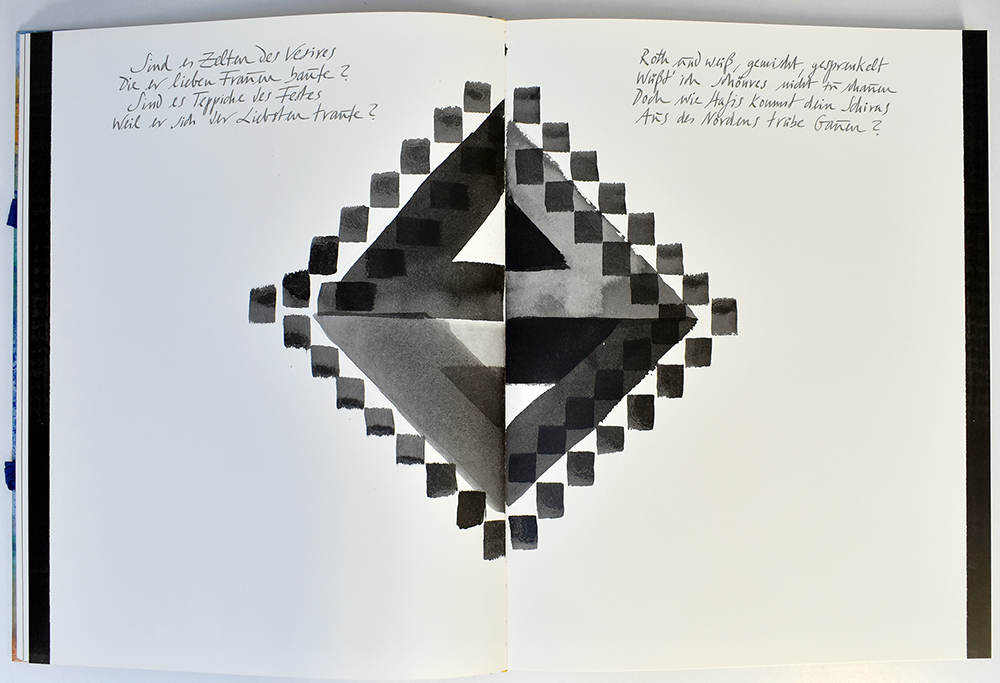 Sind es Zelten des Vesires
Die er lieben Frauen baute?
Sind es Teppiche des Festes
Weil er sich der Liebsten traute?
Roth und weiß, gemischt, gesprenkelt
Wüßt' ich Schönres nicht zu schauen
Doch wie Hafis kommt dein Schiras
Aus des Nordens trübe Gauen?